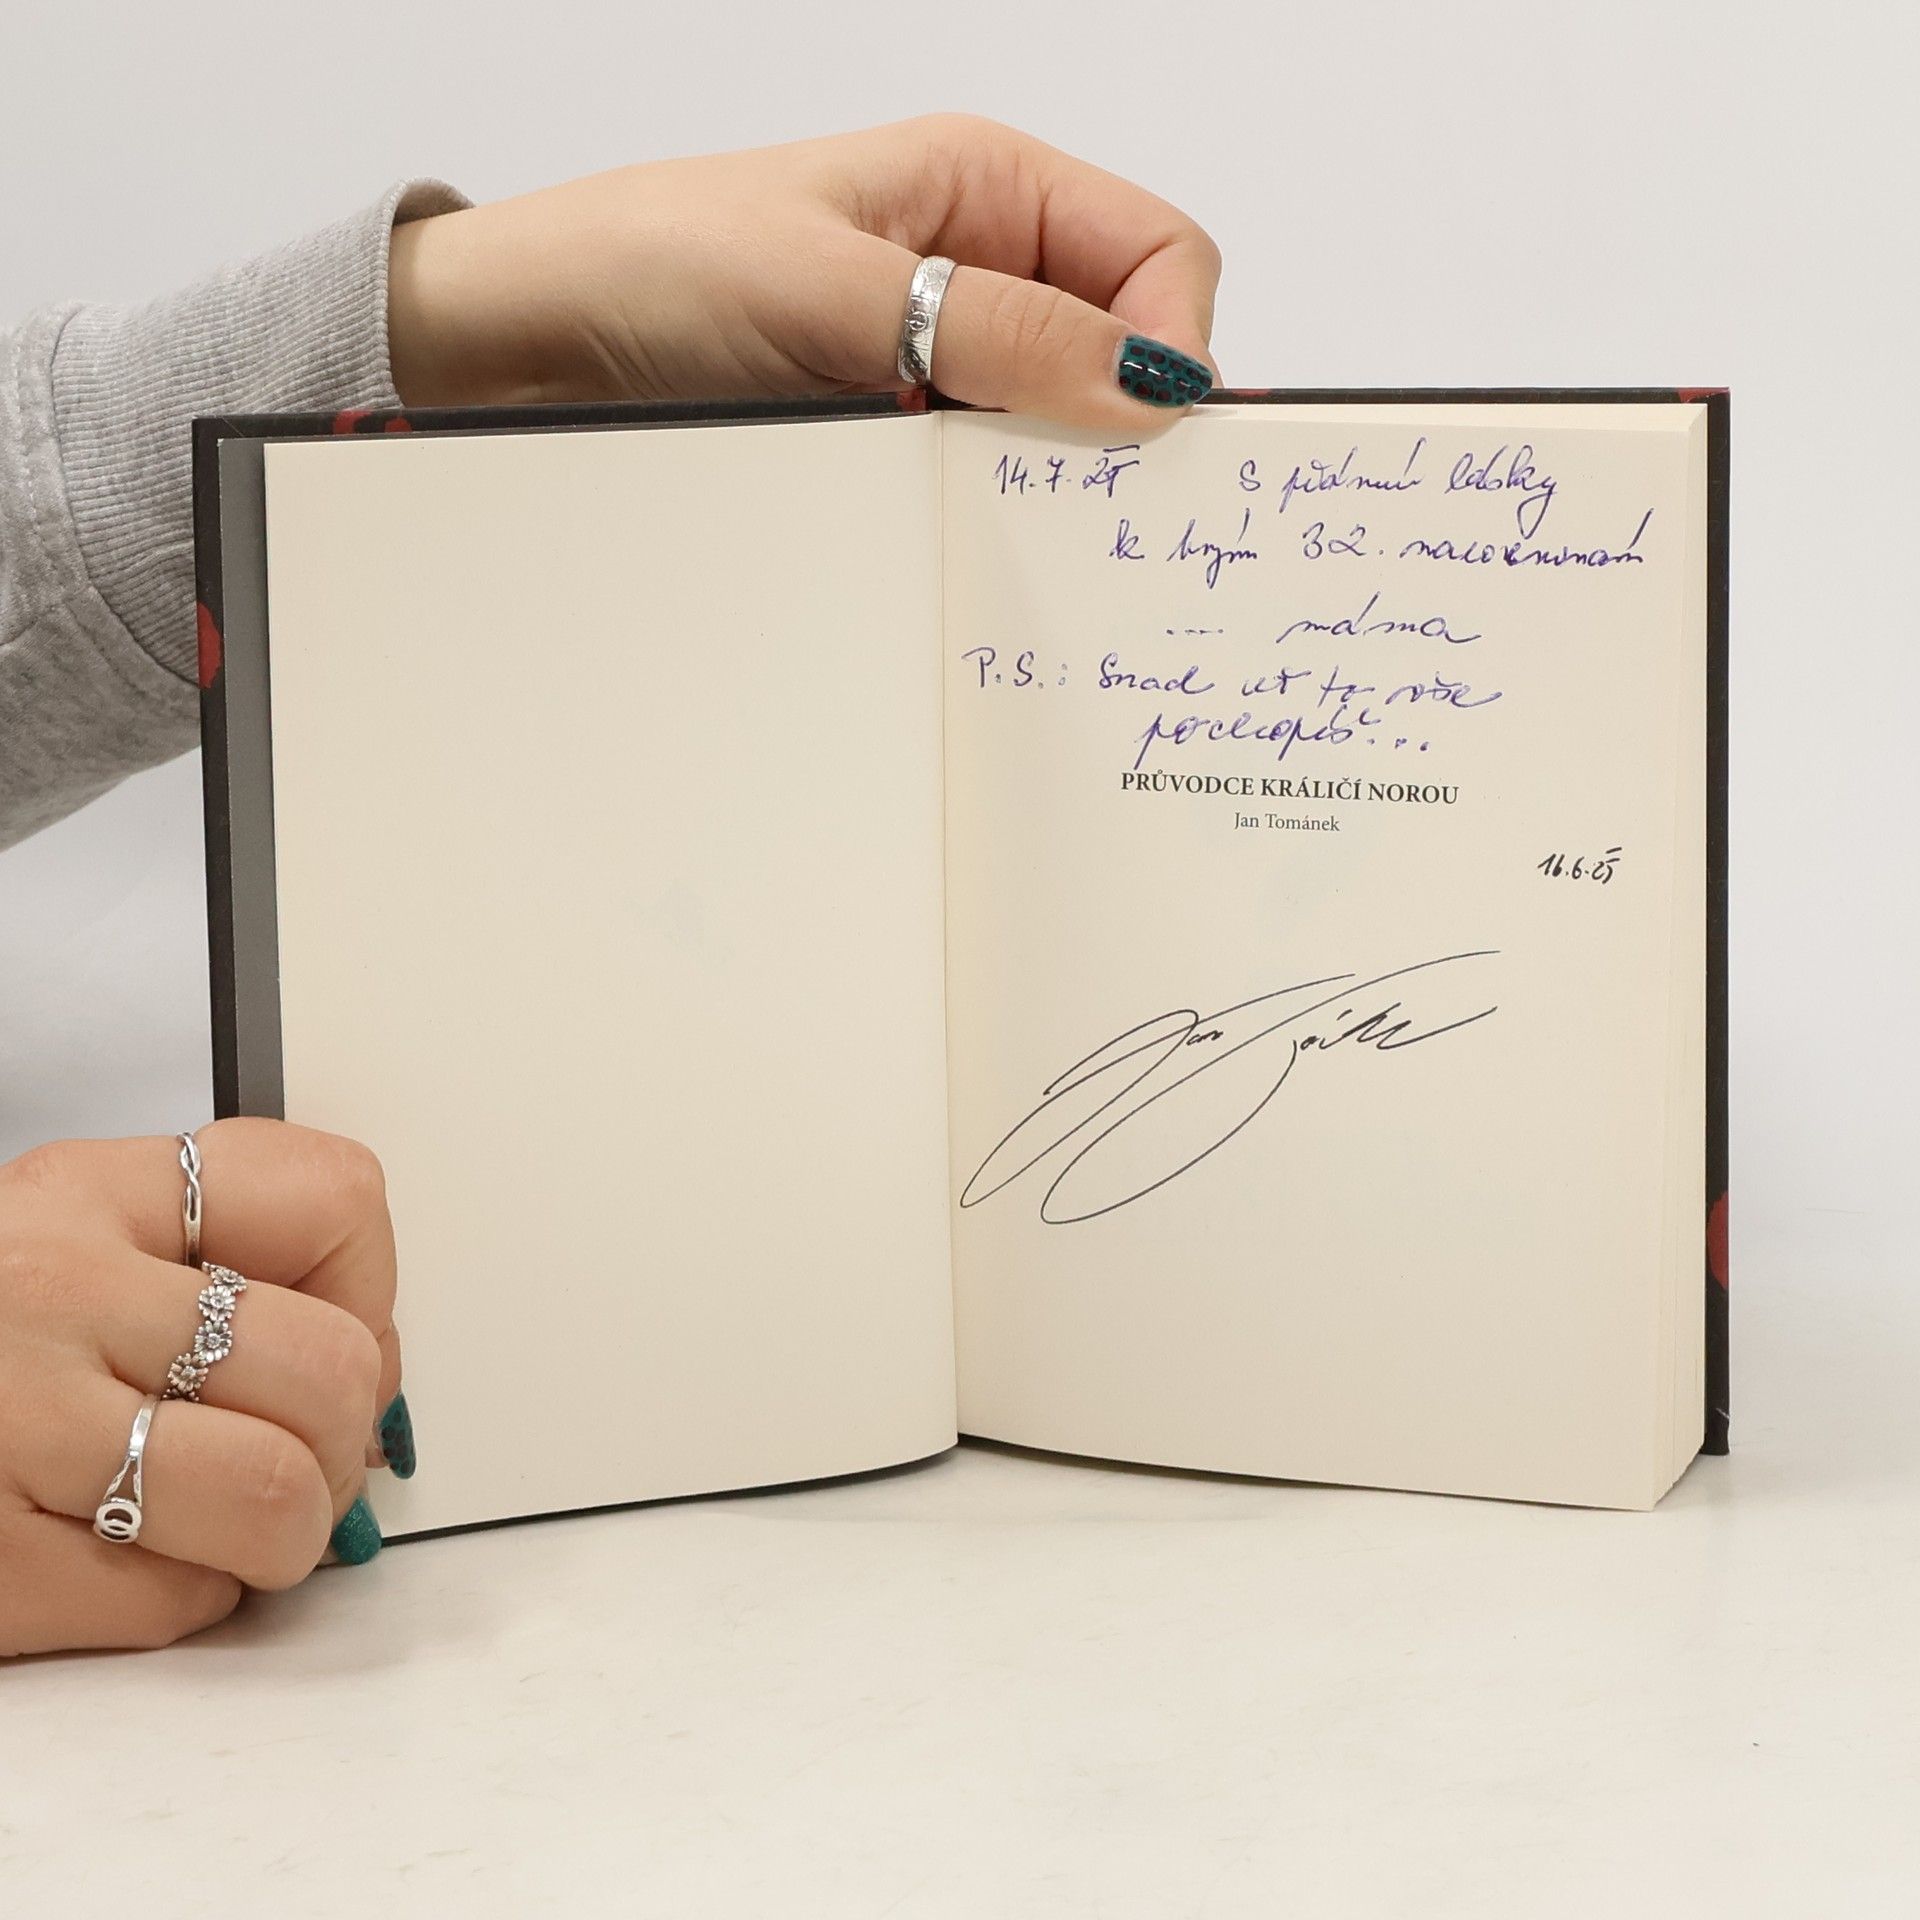 14.7.25 S přáním lásky
k tvým 32. narozeninám
.... máma
P.S.: Snad už to vše
pochopíš...
PRŮVODCE KRÁLIČÍ NOROU
Jan Tománek
16.6.25
Jan